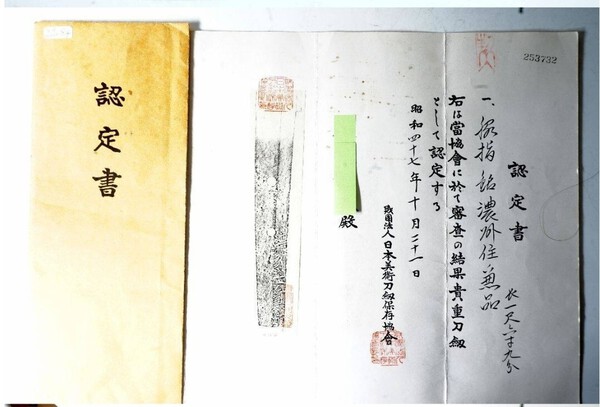 253732
認定書
一、脇指 銘 濃州住兼品
長一尺六寸九分
右は當協會に於て審査の結果貴重刀剣
として認定する
昭和四十七年十月三十一日
財團法人日本美術刀剣保存協會
殿
認定書